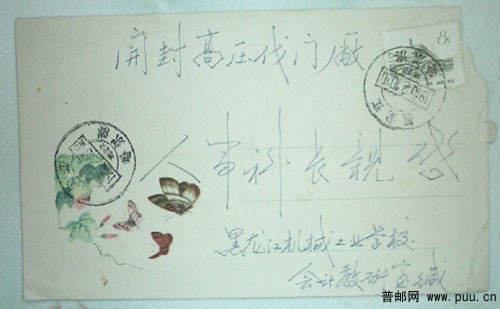 開封高压伐门厰
8
人事科长親啓
黑龙江机械工业学校
会计教研室缄
普邮网 www.puu.cn